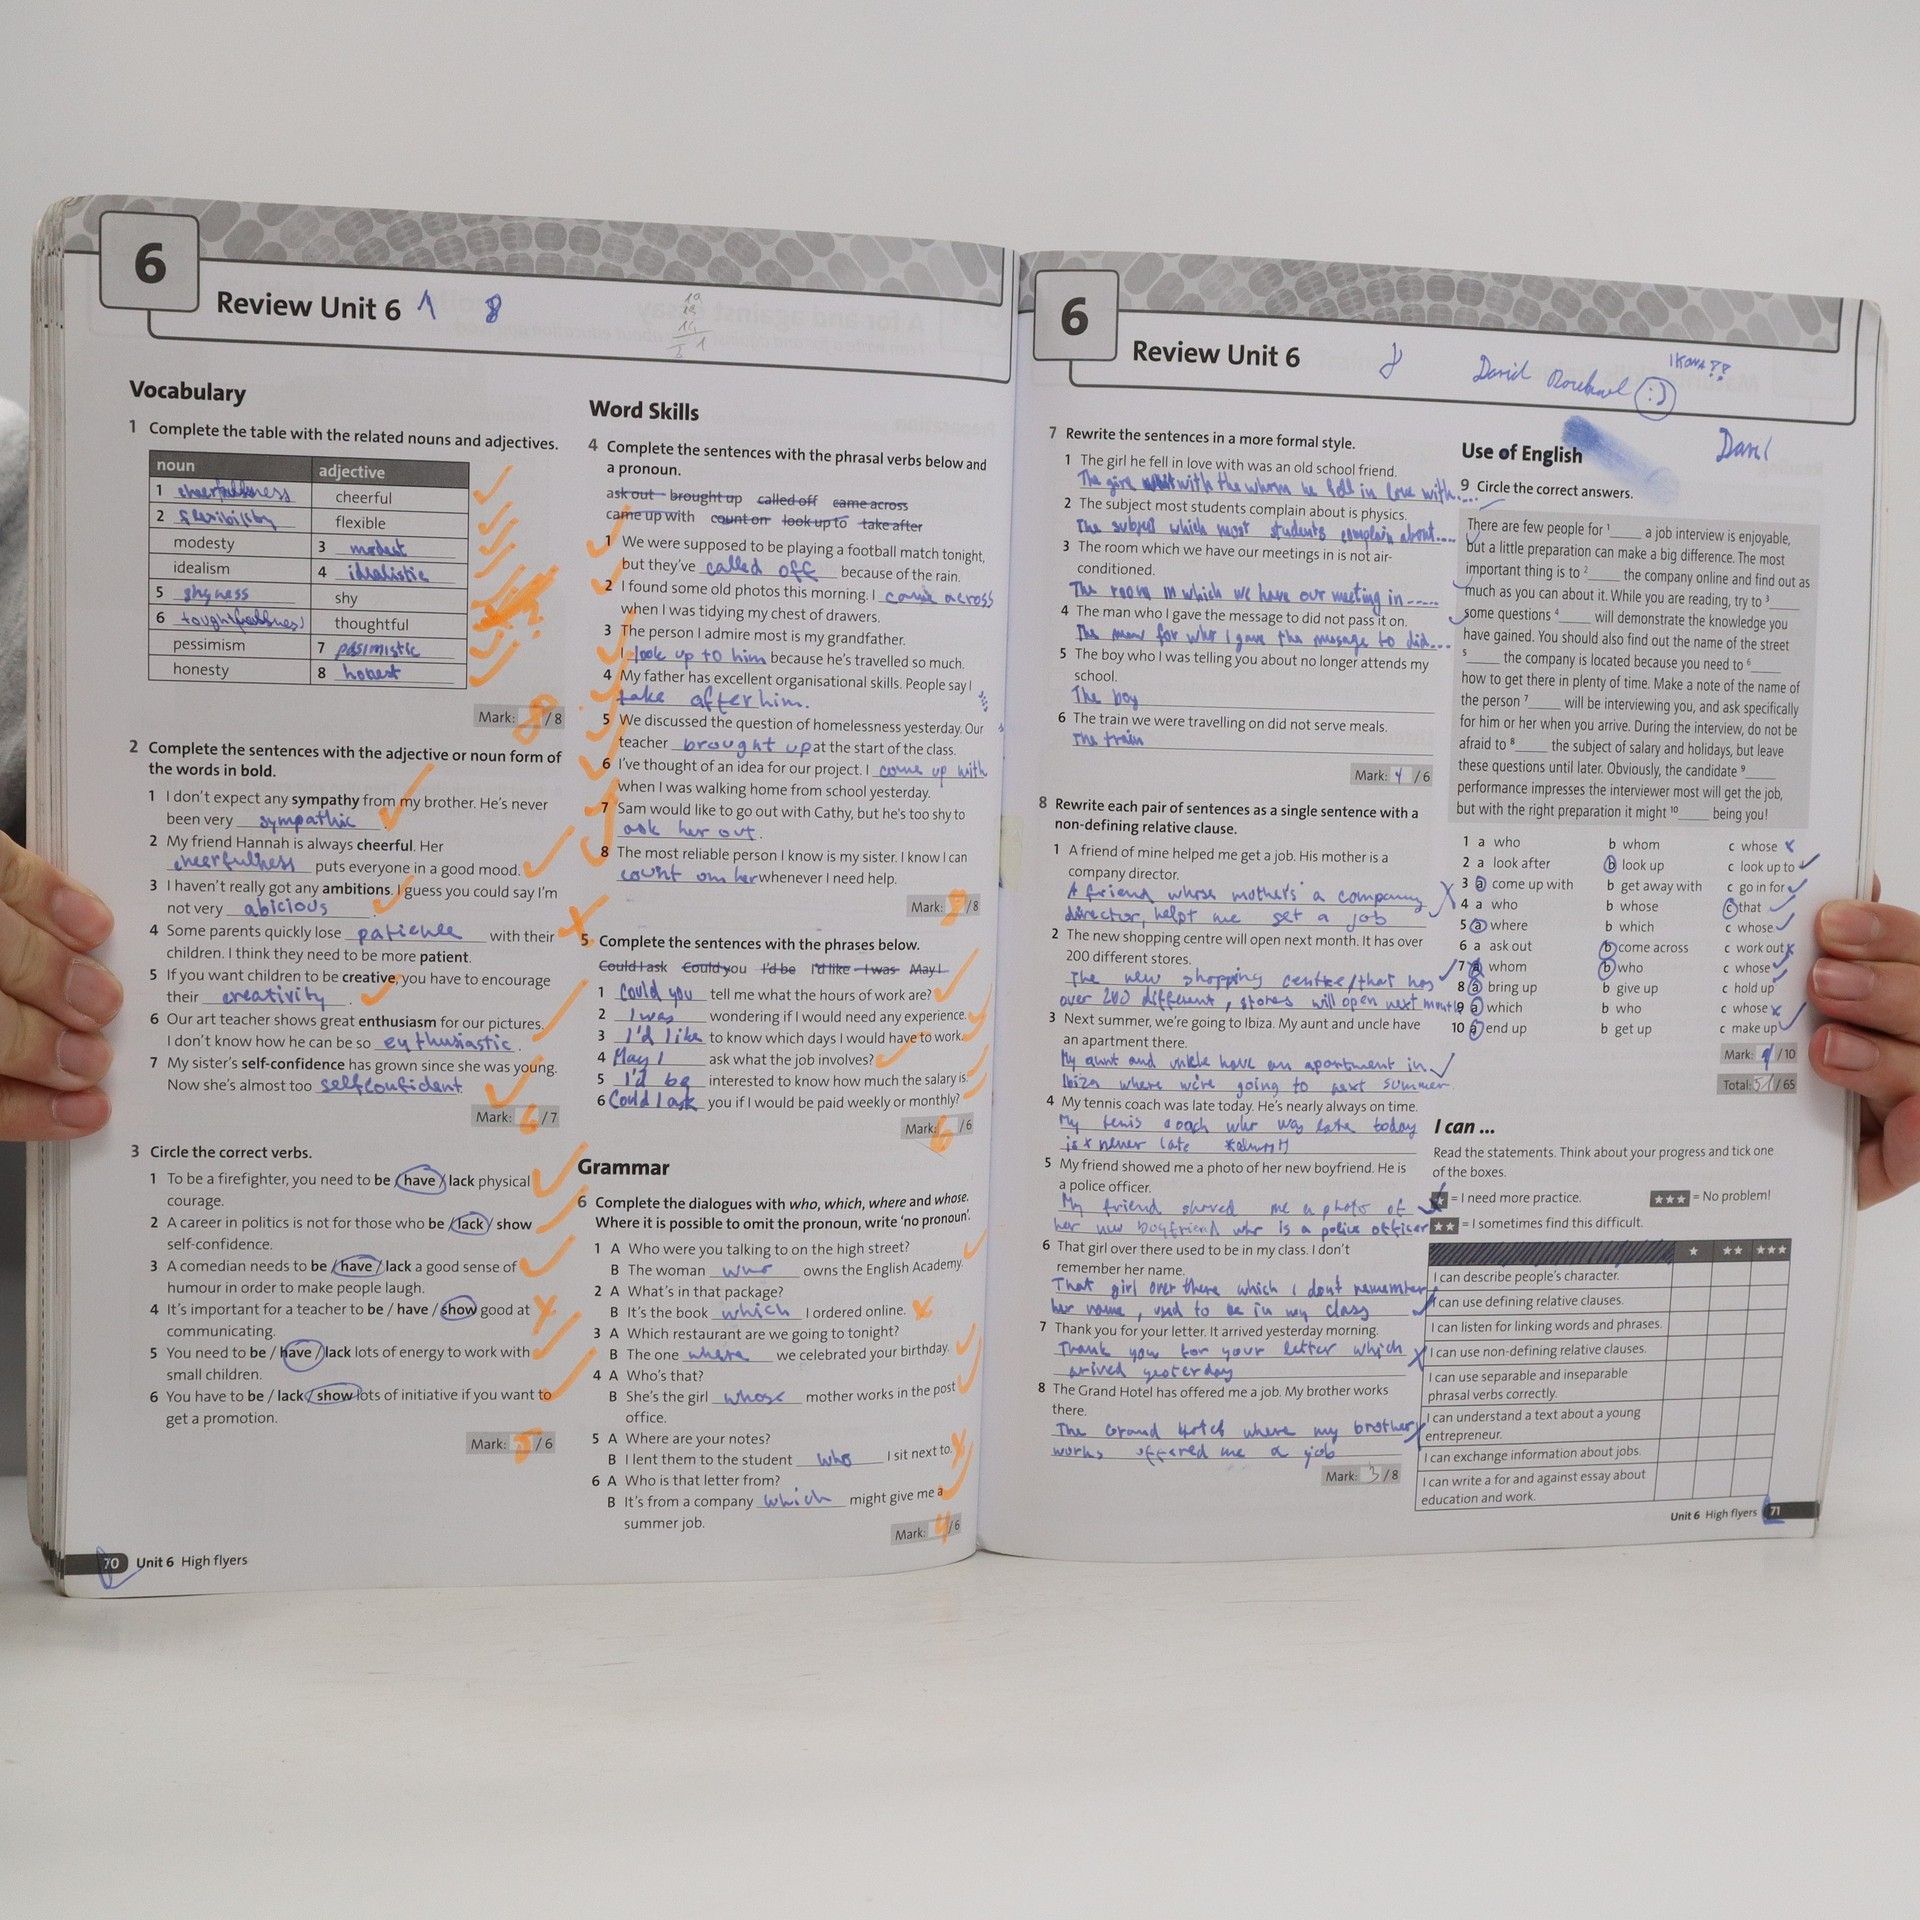 6
Review Unit 6 1 8
Vocabulary
1 Complete the table with the related nouns and adjectives.
noun adjective
1 cheerfulness cheerful
2 flexibility flexible
modesty 3 modest
idealism 4 idealistic
5 shyness shy
6 thoughtful
pessimism 7 pesimistic
honesty 8 honest
Mark: 8/8
2 Complete the sentences with the adjective or noun form of
the words in bold.
1 I don't expect any sympathy from my brother. He's never
been very sympathic.
2 My friend Hannah is always cheerful. Her
cheerfulness puts everyone in a good mood.
3 I haven't really got any ambitions. I guess you could say I'm
not very abicious.
4 Some parents quickly lose patience with their
children. I think they need to be more patient.
5 If you want children to be creative, you have to encourage
their creativity.
6 Our art teacher shows great enthusiasm for our pictures.
I don't know how he can be so eythusiastic.
7 My sister's self-confidence has grown since she was young.
Now she's almost too selfconfident.
Mark: 6/7
3 Circle the correct verbs.
1 To be a firefighter, you need to be / have / lack physical
courage.
2 A career in politics is not for those who be / lack / show
self-confidence.
3 A comedian needs to be / have / lack a good sense of
humour in order to make people laugh.
4 It's important for a teacher to be / have / show good at
communicating.
5 You need to be / have / lack lots of energy to work with
small children.
6 You have to be / lack / show lots of initiative if you want to
get a promotion.
Mark: 5/6
70 Unit 6 High flyers
Word Skills
4 Complete the sentences with the phrasal verbs below and
a pronoun.
ask out brought up called off came across
came up with count on look up to take after
1 We were supposed to be playing a football match tonight,
but they've called off because of the rain.
2 I found some old photos this morning. I came across
when I was tidying my chest of drawers.
3 The person I admire most is my grandfather.
I look up to him because he's travelled so much.
4 My father has excellent organisational skills. People say I
take after him.
5 We discussed the question of homelessness yesterday. Our
teacher brought up at the start of the class.
6 I've thought of an idea for our project. I come up with
when I was walking home from school yesterday.
7 Sam would like to go out with Cathy, but he's too shy to
ask her out.
8 The most reliable person I know is my sister. I know I can
count on her whenever I need help.
Mark: /8
5 Complete the sentences with the phrases below.
Could I ask Could you I'd be I'd like I was May I
1 Could you tell me what the hours of work are?
2 I was wondering if I would need any experience.
3 I'd like to know which days I would have to work.
4 May I ask what the job involves?
5 I'd be interested to know how much the salary is.
6 Could I ask you if I would be paid weekly or monthly?
Mark: 6/6
Grammar
6 Complete the dialogues with who, which, where and whose.
Where it is possible to omit the pronoun, write 'no pronoun'.
1 A Who were you talking to on the high street?
B The woman who owns the English Academy.
2 A What's in that package?
B It's the book which I ordered online.
3 A Which restaurant are we going to tonight?
B The one where we celebrated your birthday.
4 A Who's that?
B She's the girl whose mother works in the post
office.
5 A Where are your notes?
B I lent them to the student who I sit next to.
6 A Who is that letter from?
B It's from a company which might give me a
summer job.
Mark: 4/6
6
Review Unit 6
David :)
7 Rewrite the sentences in a more formal style.
1 The girl he fell in love with was an old school friend.
with the whom he fell in love with....
2 The subject most students complain about is physics.
The subject which most students complain about....
3 The room which we have our meetings in is not air-
conditioned.
The room in which we have our meeting in -----
4 The man who I gave the message to did not pass it on.
The man for who I gave the message to did...
5 The boy who I was telling you about no longer attends my
school.
The boy
6 The train we were travelling on did not serve meals.
The train
Mark: /6
8 Rewrite each pair of sentences as a single sentence with a
non-defining relative clause.
1 A friend of mine helped me get a job. His mother is a
company director.
A friend whose mother's a company
director, helpt me get a job
2 The new shopping centre will open next month. It has over
200 different stores.
The new shopping centre/that has
over 200 different, stores will open next month
3 Next summer, we're going to Ibiza. My aunt and uncle have
an apartment there.
My aunt and unkle have an apartment in
Ibiza where we're going to next summer.
4 My tennis coach was late today. He's nearly always on time.
My tenis coach who was late today
is never late
5 My friend showed me a photo of her new boyfriend. He is
a police officer.
My friend showed me a photo of
her new boyfriend who is a police officer
6 That girl over there used to be in my class. I don't
remember her name.
That girl over there which I don't remember
her name, used to be in my class
7 Thank you for your letter. It arrived yesterday morning.
Thank you for your letter which
arived yesterday
8 The Grand Hotel has offered me a job. My brother works
there.
The Grand Hotel where my brother
works offered me a job
Mark: 3/8
Use of English
9 Circle the correct answers.
There are few people for 1____ a job interview is enjoyable,
but a little preparation can make a big difference. The most
important thing is to 2____ the company online and find out as
much as you can about it. While you are reading, try to 3____
some questions 4____ will demonstrate the knowledge you
have gained. You should also find out the name of the street
5____ the company is located because you need to 6____
how to get there in plenty of time. Make a note of the name of
the person 7____ will be interviewing you, and ask specifically
for him or her when you arrive. During the interview, do not be
afraid to 8____ the subject of salary and holidays, but leave
these questions until later. Obviously, the candidate 9____
performance impresses the interviewer most will get the job,
but with the right preparation it might 10____ being you!
1 a who b whom c whose
2 a look after b look up c look up to
3 a come up with b get away with c go in for
4 a who b whose c that
5 a where b which c whose
6 a ask out b come across c work out
7 a whom b who c whose
8 a bring up b give up c hold up
9 a which b who c whose
10 a end up b get up c make up
Mark: /10
Total: 51/65
I can ...
Read the statements. Think about your progress and tick one
of the boxes.
★ = I need more practice. ★★★ = No problem!
★★ = I sometimes find this difficult.
★ ★★ ★★★
I can describe people's character.
I can use defining relative clauses.
I can listen for linking words and phrases.
I can use non-defining relative clauses.
I can use separable and inseparable
phrasal verbs correctly.
I can understand a text about a young
entrepreneur.
I can exchange information about jobs.
I can write a for and against essay about
education and work.
Unit 6 High flyers 71